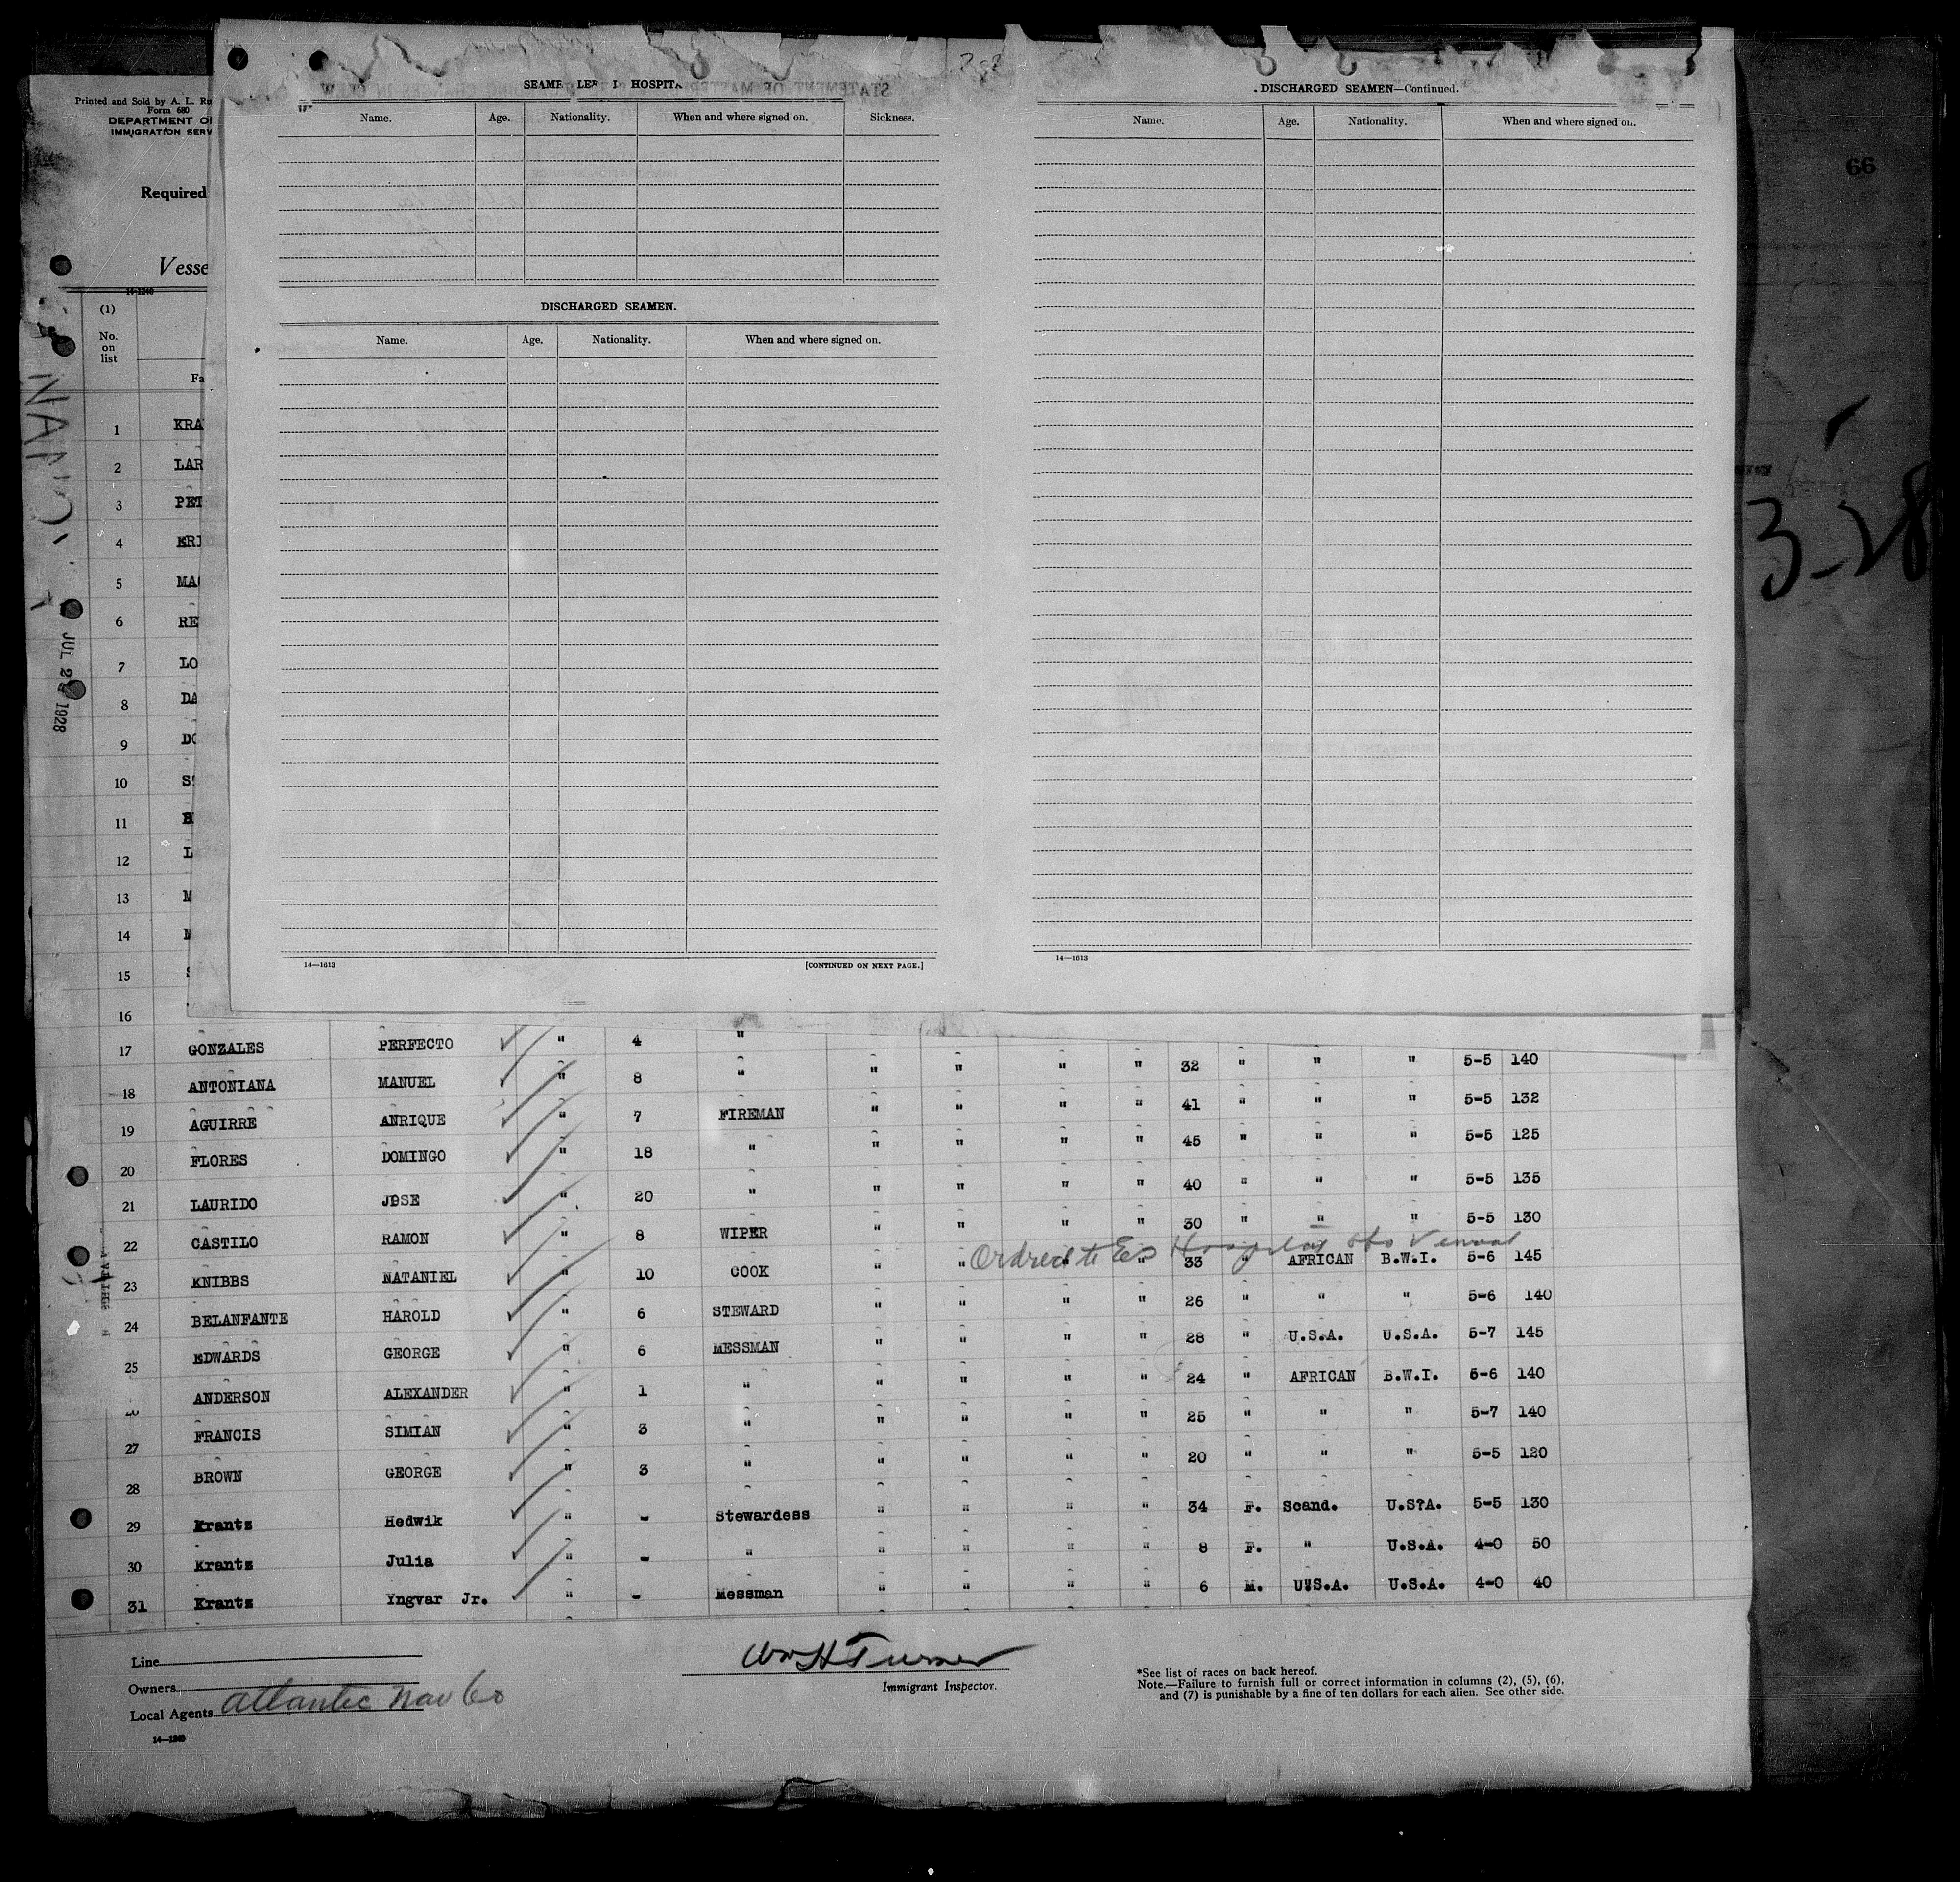 Printed and Sold by A. L.
Form 680
DEPARTMENT
IMMIGRATION
Required
14-1240
(1)
No.
on
list
JUL 2 1928
66
3-28
SEAME LEF HOSPITA
Name. Age. Nationality. When and where signed on. Sickness.
DISCHARGED SEAMEN.
Name. Age. Nationality. When and where signed on.
14—1613 [CONTINUED ON NEXT PAGE.]
DISCHARGED SEAMEN—Continued.
Name. Age. Nationality. When and where signed on.
14—1613
1 KRA
2 LAR
3 PET
4 ERI
5 MA
6 RE
7 LO
8 DA
9 DO
10 S
11
12 L
13 M
14
15
16
17 GONZALES PERFECTO " 4 "
18 ANTONIANA MANUEL " 8 " " " " " 32 " " " 5-5 140
19 AGUIRRE ANRIQUE " 7 FIREMAN " " " " 41 " " " 5-5 132
20 FLORES DOMINGO " 18 " " " " " 45 " " " 5-5 125
21 LAURIDO JOSE " 20 " " " " " 40 " " " 5-5 135
22 CASTILO RAMON " 8 WIPER " " " " 30 " " " 5-5 130
Ordred to Hospital
23 KNIBBS NATANIEL " 10 COOK " " " " 33 " AFRICAN B.W.I. 5-6 145
24 BELANFANTE HAROLD " 6 STEWARD " " " " 26 " " " 5-6 140
25 EDWARDS GEORGE " 6 MESSMAN " " " " 28 " U.S.A. U.S.A. 5-7 145
ANDERSON ALEXANDER " 1 " " " " " 24 " AFRICAN B.W.I. 5-6 140
27 FRANCIS SIMIAN " 3 " " " " " 25 " " " 5-7 140
28 BROWN GEORGE " 3 " " " " " 20 " " " 5-5 120
29 Krantz Hedwik " - Stewardess " " " " 34 F. Scand. U.S?A. 5-5 130
30 Krantz Julia " - " " " " " 8 F. " U.S.A. 4-0 50
31 Krantz Yngvar Jr. " - Messman " " " " 6 M. U"S.A. U.S.A. 4-0 40
Line
Owners
Local Agents Atlantic Nav Co
14—1240
Wm H Turner
Immigrant Inspector.
*See list of races on back hereof.
Note.—Failure to furnish full or correct information in columns (2), (5), (6),
and (7) is punishable by a fine of ten dollars for each alien. See other side.